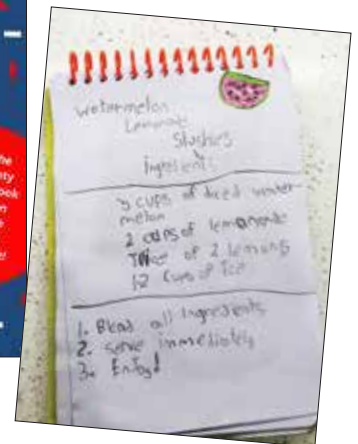 he
nty
ook
n
e
!
watermelon
Lemonade
Slushies
Ingredients
cups of diced water
melon
2 cups of lemonade
of 2 lemons
12 Cups of Ice
1. all Ingredients
2. serve immediately
3. Enjoy!